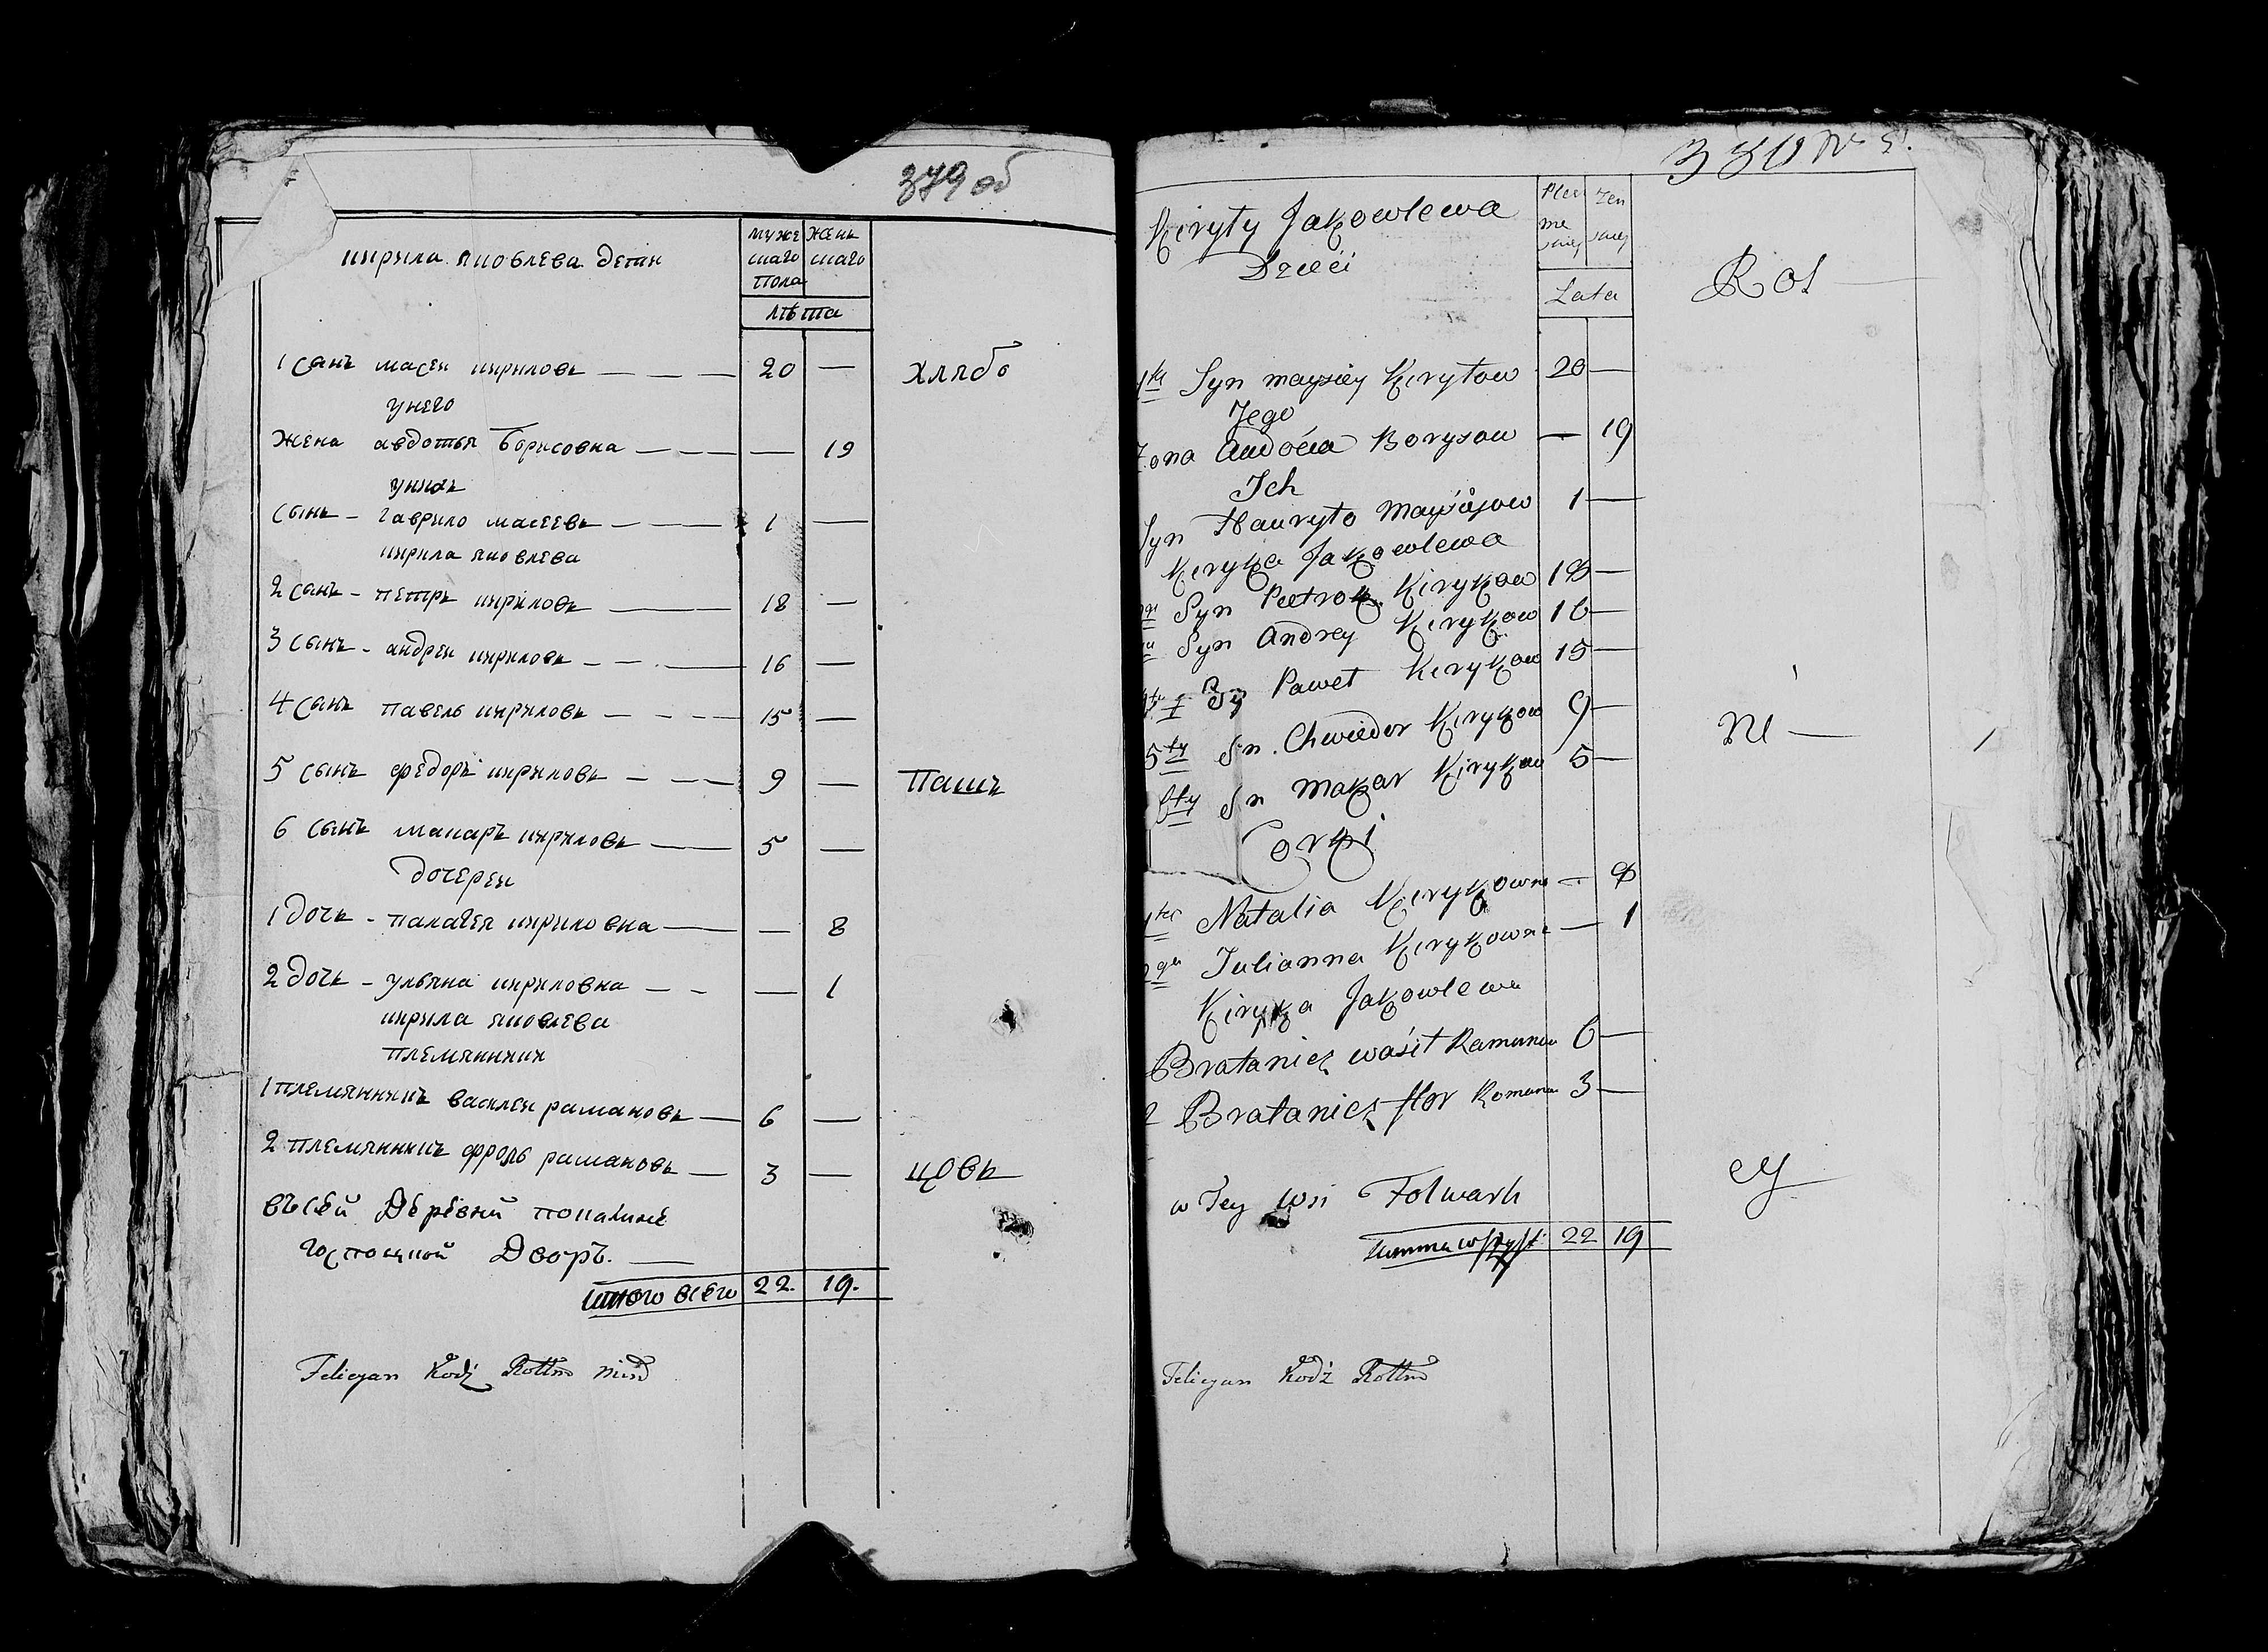 379 об
кирила яковлева дети
муже
скаго
пола
женъ
скаго
лѣта
1 сынъ масеи кириловъ — — — 20 —
хлѣбо
унего
жена авдотья борисовна — — — — 19
унихъ
сынъ – гаврило масеевъ — — 1 —
кирила яковлева
2 сынъ – петръ кириловъ — 18 —
3 сынъ – андреи кириловъ — — — 16 —
4 сынъ павелъ кириловъ — — — — 15 —
5 сынъ федоръ кириловъ — — — 9 —
пашъ
6 сынъ макаръ кириловъ — 5 —
дочереи
1 дочь – палагея кириловна — — 8
2 дочь – ульяна кириловна — — — 1
кирила яковлева
племянники
1 племянникъ василеи рамановъ — 6 —
2 племянникъ фролъ рамановъ — 3 —
цовъ
въсеи Деревни
Дворъ. —
всего 22. 19.
Felicyan Kodź Rottm
380 № 5.
Kiryły Jakowlewa
Dzieci
Płci
me
skiej
żen
skiej
Lata
Rol —
1szy Syn maysiey Kiryłow 20 —
Jego
Żona Audocia Borysow — 19
Ich
Syn Hauryło Maysiejow 1 —
Kiryka Jakowlewa
Syn Pietrok Kirykow 18 —
Syn Andrey Kirykow 16 —
Sy Paweł Kirykow 15 —
5ty Sn. Chwiedor Kirykow 9 —
ni —
6ty Sn Makar Kirykow 5 —
Corki
1sza Natalia Kirykowna — 8
2ga Julianna Kirykowna — 1
Kiryka Jakowlewa
Bratanicz Wasil Ramanow 6 —
2 Bratanicz flor Romana 3 —
cy
w Tey wsi Folwark
Summa wszyst: 22 19
Felicyan Kodź Rottm